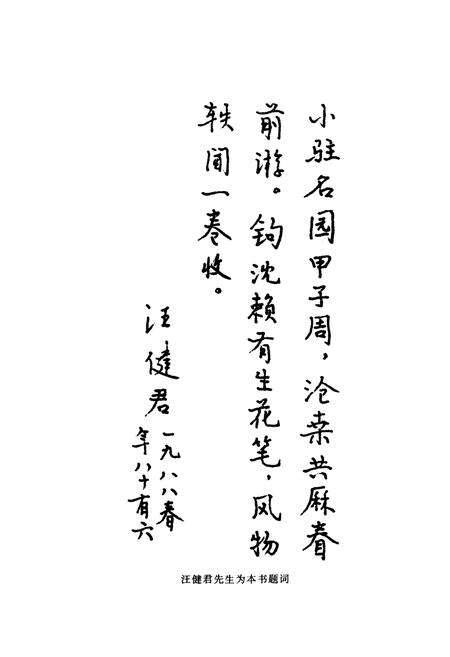 小驻名园甲子周，沧桑共厤眷
前游。钩沈赖有生花笔，风物
轶闻一卷收。
汪健君
一九八八春
年八十有六
汪健君先生为本书题词